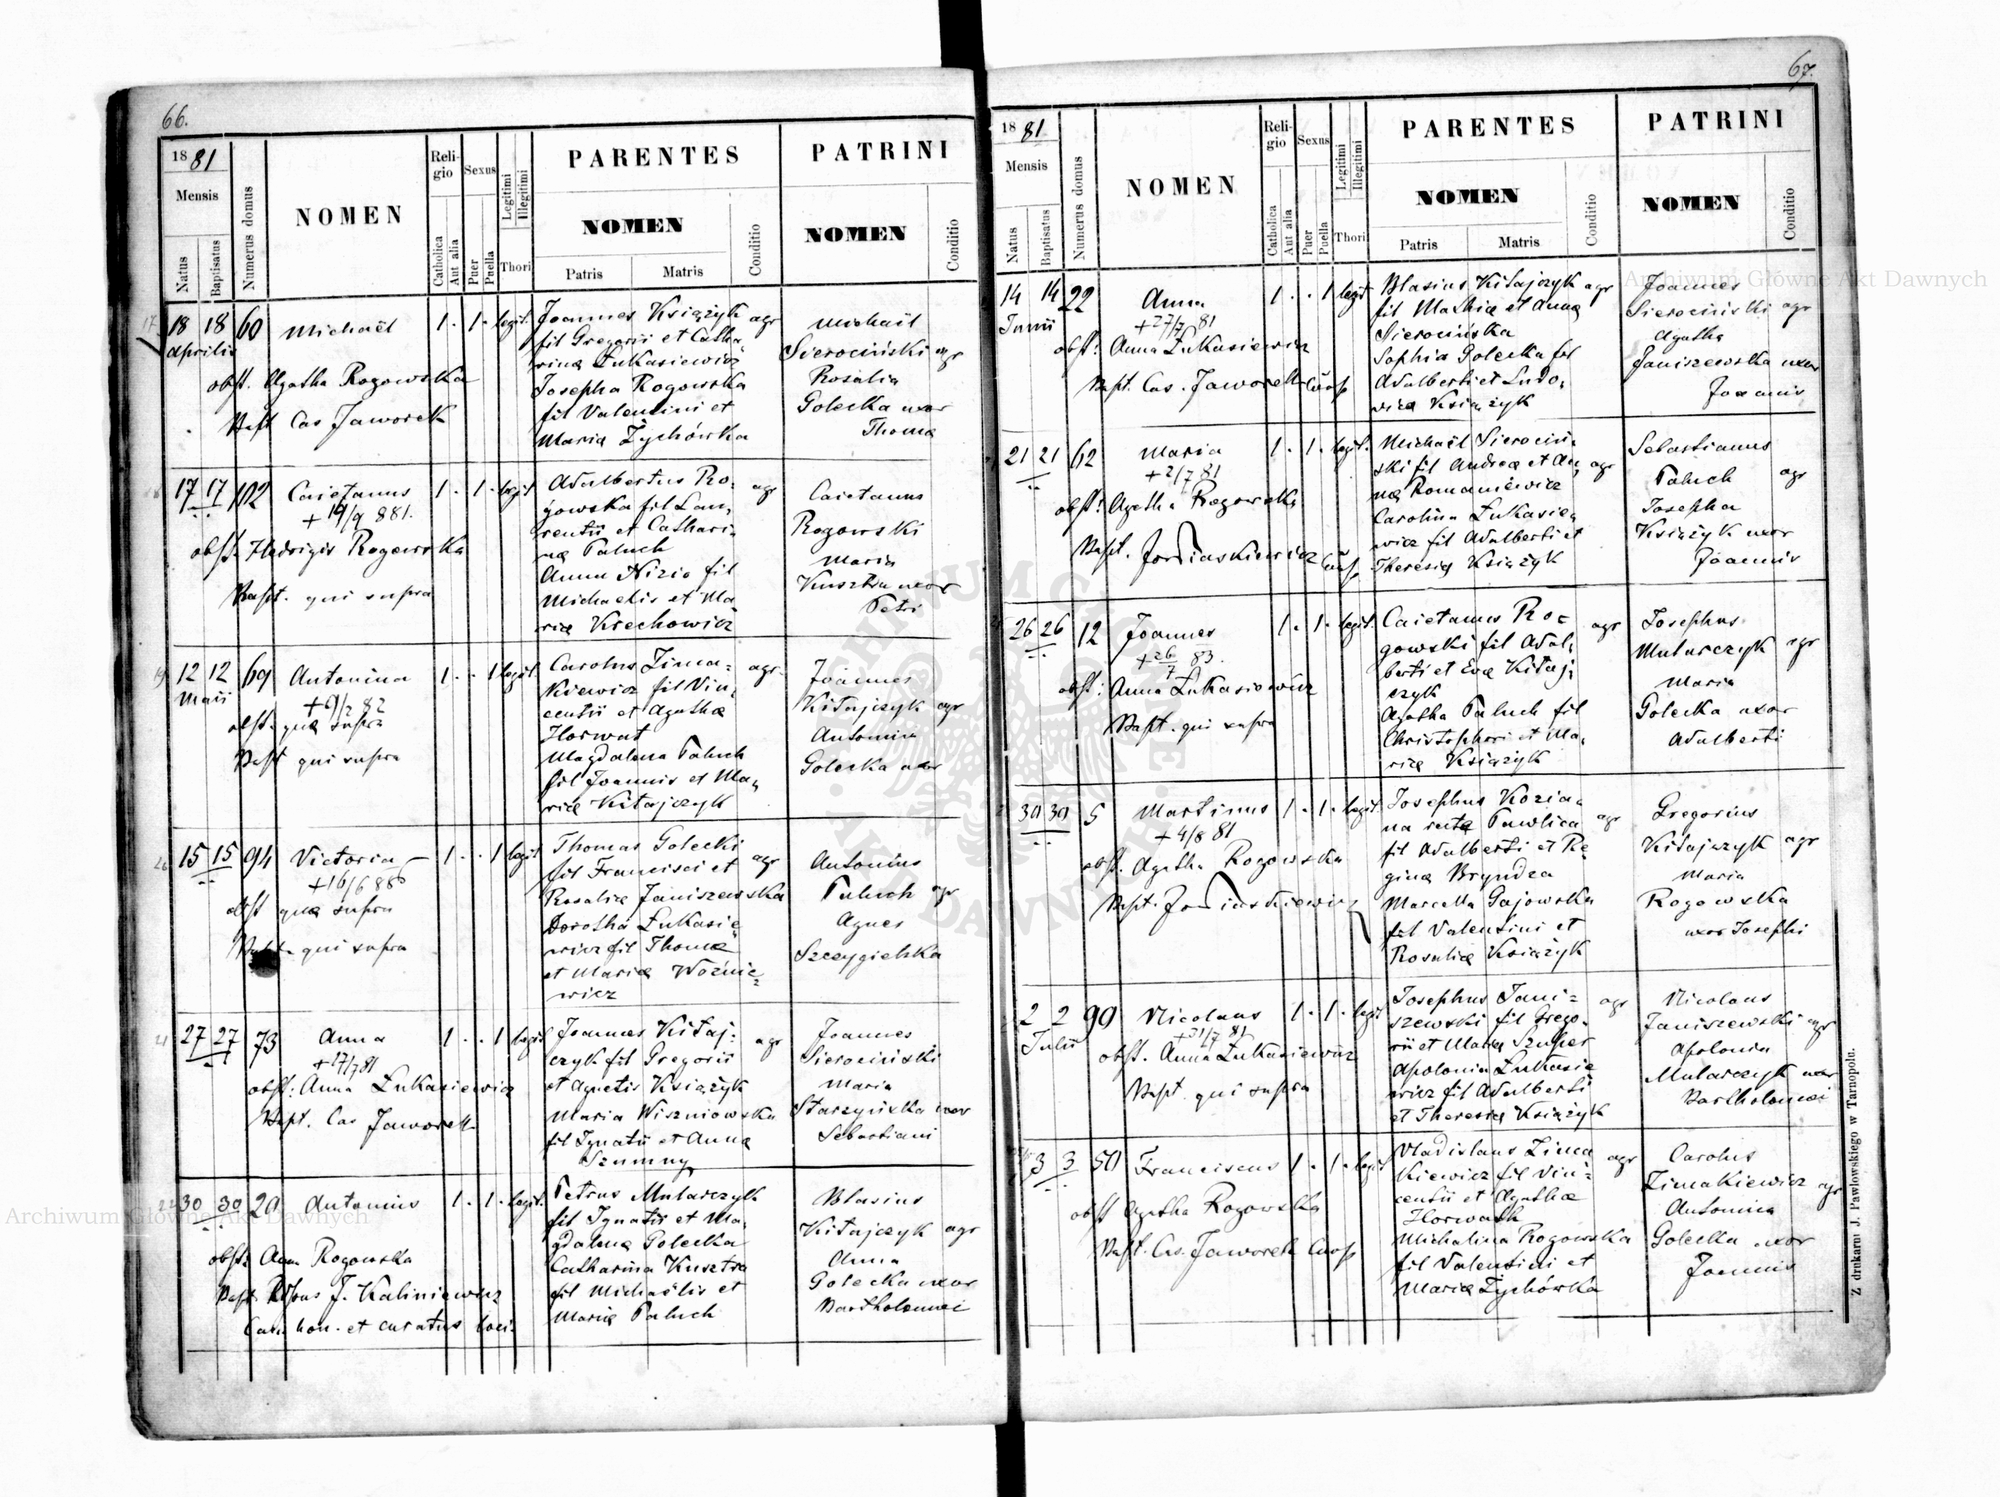 66.
18 81
Mensis
Natus
Baptisatus
Numerus domus
NOMEN
Religio
Catholica
Aut alia
Sexus
Puer
Puella
Legitimi
Illegitimi
Thori
PARENTES
NOMEN
Patris
Matris
Conditio
PATRINI
NOMEN
Conditio
18 18 60 Michaël 1 . 1 . legit.
Aprilis
obst. Agatha Rogowska
Bapt Cas Jaworek
Joannes Książyk agr
fil Gregorii et Catha,
rinæ Łukasiewicz
Josepha Rogowska
fil Valentini et
Mariæ Zychówka
Michaël
Sierociński agr
Rosalia
Golecka uxor
Thomæ
17 17 102 Caietanus 1 . 1 . legit
+ 19/9 881.
obst. Hedvigis Rogowska
Bapt. qui supra
Adalbertus Ro- agr
gowska fil Lau,
rentii et Cathari-
næ Paluch
Anna Nizio fil
Michaelis et Ma
riæ Krechowicz
Caietanus
Rogowski
Maria
Kusztra uxor
Petri
12 12 69 Antonina 1 . . 1 legit.
Maii
obst. quæ supra
Bapt qui supra
Carolus Zima- agr.
kiewicz fil Vin,
centii et Agathæ
Horwat
Magdalena Paluch
fil Joannis et Ma,
riæ Kitajczyk
Joannes
Kitajczyk agr
Antonina
Golecka uxor
15 15 94 Victoria 1 . . 1 legit
obst quæ supra
Bapt. qui supra
Thomas Golecki
fil Francisci et agr
Rosaliæ Janiszewska
Dorotha Łukasie
wicz fil Thomæ
et Mariæ Woźnie-
wicz
Antonius
Paluch agr
Agnes
Szczygielska
27 27 73 Anna 1 . . 1 legit
+17/7 81
obst: Anna Łukasiewicz
Bapt. Cas Jaworek
Joannes Kitaj-
czyk fil Gregorii agr
et Agnetis Książyk
Maria Wiszniowska
fil Ignatii et Annæ
Szumny
Joannes
Sierociński
Maria
Starzyńska uxor
Sebastiani
30 30 20 Antonius 1 . 1 . legit.
obst: Agn Rogowska
Bapt. J. Kaliniewicz
hon. et curatus loci.
Petrus Mularczyk
fil Ignatii et Ma,
gdalenæ Golecka
Catharina Kusztra
fil Michaëlis et
Mariæ Paluch
Blasius
Kitajczyk agr
Anna
Golecka uxor
Bartholomei
67.
18 81
Mensis
Natus
Baptisatus
Numerus domus
NOMEN
Religio
Catholica
Aut alia
Sexus
Puer
Puella
Legitimi
Illegitimi
Thori
PARENTES
NOMEN
Patris
Matris
Conditio
PATRINI
NOMEN
Conditio
14 14 22 Anna 1 . . 1 legit
Junii
+27/7 81
obst: Anna Łukasiewicz
Bapt. Cas. Jaworek
Blasius Kitajczyk agr
fil Mathiæ et Annæ
Sierocińska
Sophia Golecka fil
Adalberti et Ludo,
vicæ Książyk
Joannes
Sierociński agr
Agatha
Janiszewska uxor
Joannis
21 21 62 Maria 1 . 1 . legit.
+2/7 81
obst: Agatha Rogowska
Bapt.
Michaël Sierociń-
ski fil Andreæ et An, agr
næ Romaniewicz
Carolina Łukasie,
wicz fil Adalberti et
Theresiæ Książyk
Sebastianus
Paluch agr
Josepha
Książyk uxor
Joannis
26 26 12 Joannes 1 . 1 . legit.
+ 26/7 83.
obst: Anna Łukasiewicz
Bapt. qui supra
Caietanus Ro- agr
gowski fil Adal,
berti et Evæ Kitaj,
czyk
Agatha Paluch fil
Christophori et Ma,
riæ Książyk
Josephus
Mularczyk agr
Maria
Golecka uxor
Adalberti
30 30 5 Martinus 1 . 1 . legit.
+ 4/8 81
obst. Agatha Rogowska
Bapt.
Josephus Kozia-
na recte Pawlica agr
fil Adalberti et Re
ginæ Bryndza
Marcella Gajowska
fil Valentini et
Rosaliæ Książyk
Gregorius
Kitajczyk agr
Maria
Rogowska
uxor Josephi
2 2 90 Nicolaus 1 . 1 . legit
Julii
+31/7 81
obst. Anna Łukasiewicz
Bapt. qui supra
Josephus Jani- agr
szewski fil Grego-
rii et Mariæ Szuper
Apolonia Łukasie
wicz fil Adalberti
et Theresiæ Książyk
Nicolaus
Janiszewski agr
Apolonia
Mularczyk uxor
Bartholomei
3 3 50 Franciscus 1 . 1 . legit
obst Agatha Rogowska
Bapt. Cas. Jaworek
Vladislaus Zima agr
kiewicz fil Vin-
centii et Agathæ
Horwath
Michalina Rogowska
fil Valentini et
Mariæ Zychówka
Carolus
Zimakiewicz agr
Antonina
Golecka uxor
Joannis
Z drukarni J. Pawłowskiego w Tarnopolu.
Archiwum Główne Akt Dawnych
Archiwum Główne Akt Dawnych
ARCHIWUM GŁÓWNE AKT DAWNYCH